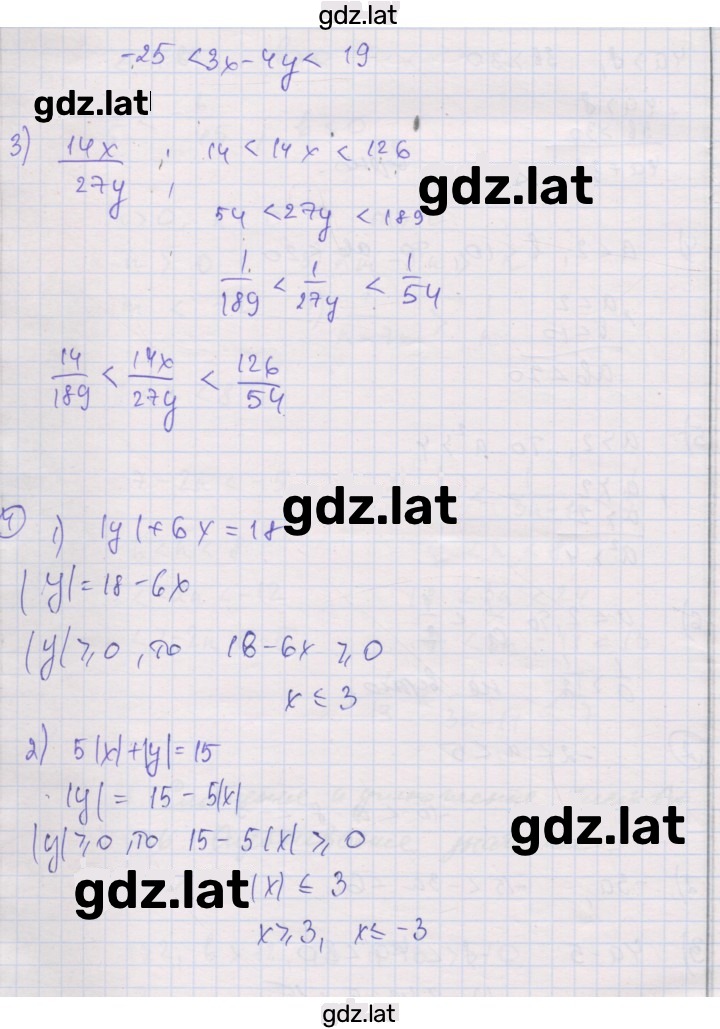 gdz.lat
-25 < 3x - 4y < 19
gdz.lat
3) 14x/27y ; 14 < 14x < 126
gdz.lat
54 < 27y < 189
1/189 < 1/27y < 1/54
14/189 < 14x/27y < 126/54
gdz.lat
1) |y| + 6x = 18
|y| = 18 - 6x
|y| ⩾ 0, то 18 - 6x ⩾ 0
x ≤ 3
2) 5|x| + |y| = 15
|y| = 15 - 5|x|
gdz.lat
|y| ⩾ 0, то 15 - 5|x| ⩾ 0
gdz.lat |x| ≤ 3
x ⩾ 3, x ≤ -3
gdz.lat